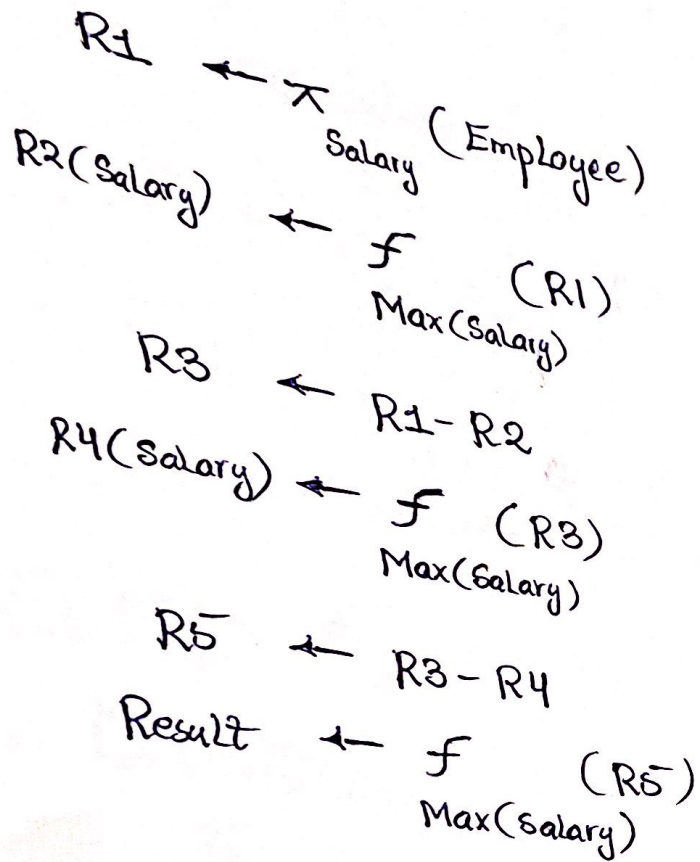 R1 ← π Salary (Employee)
R2(Salary) ← f Max(Salary) (R1)
R3 ← R1 - R2
R4(Salary) ← f Max(Salary) (R3)
R5 ← R3 - R4
Result ← f Max(Salary) (R5)